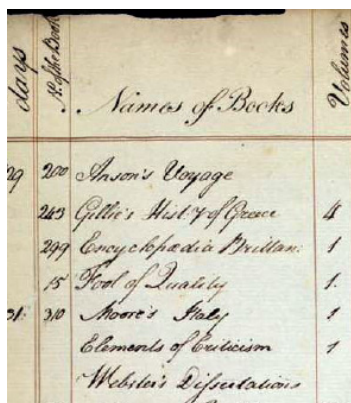 days No. of the Book Names of Books Volumes
29 200 Anson's Voyage
243 Gillie's Hist.y of Greece 4
299 Encyclopædia Brittan: 1
15 Fool of Quality 1.
31. 310 Moore's Italy 1
Elements of Criticism 1
Webster's Dissertations